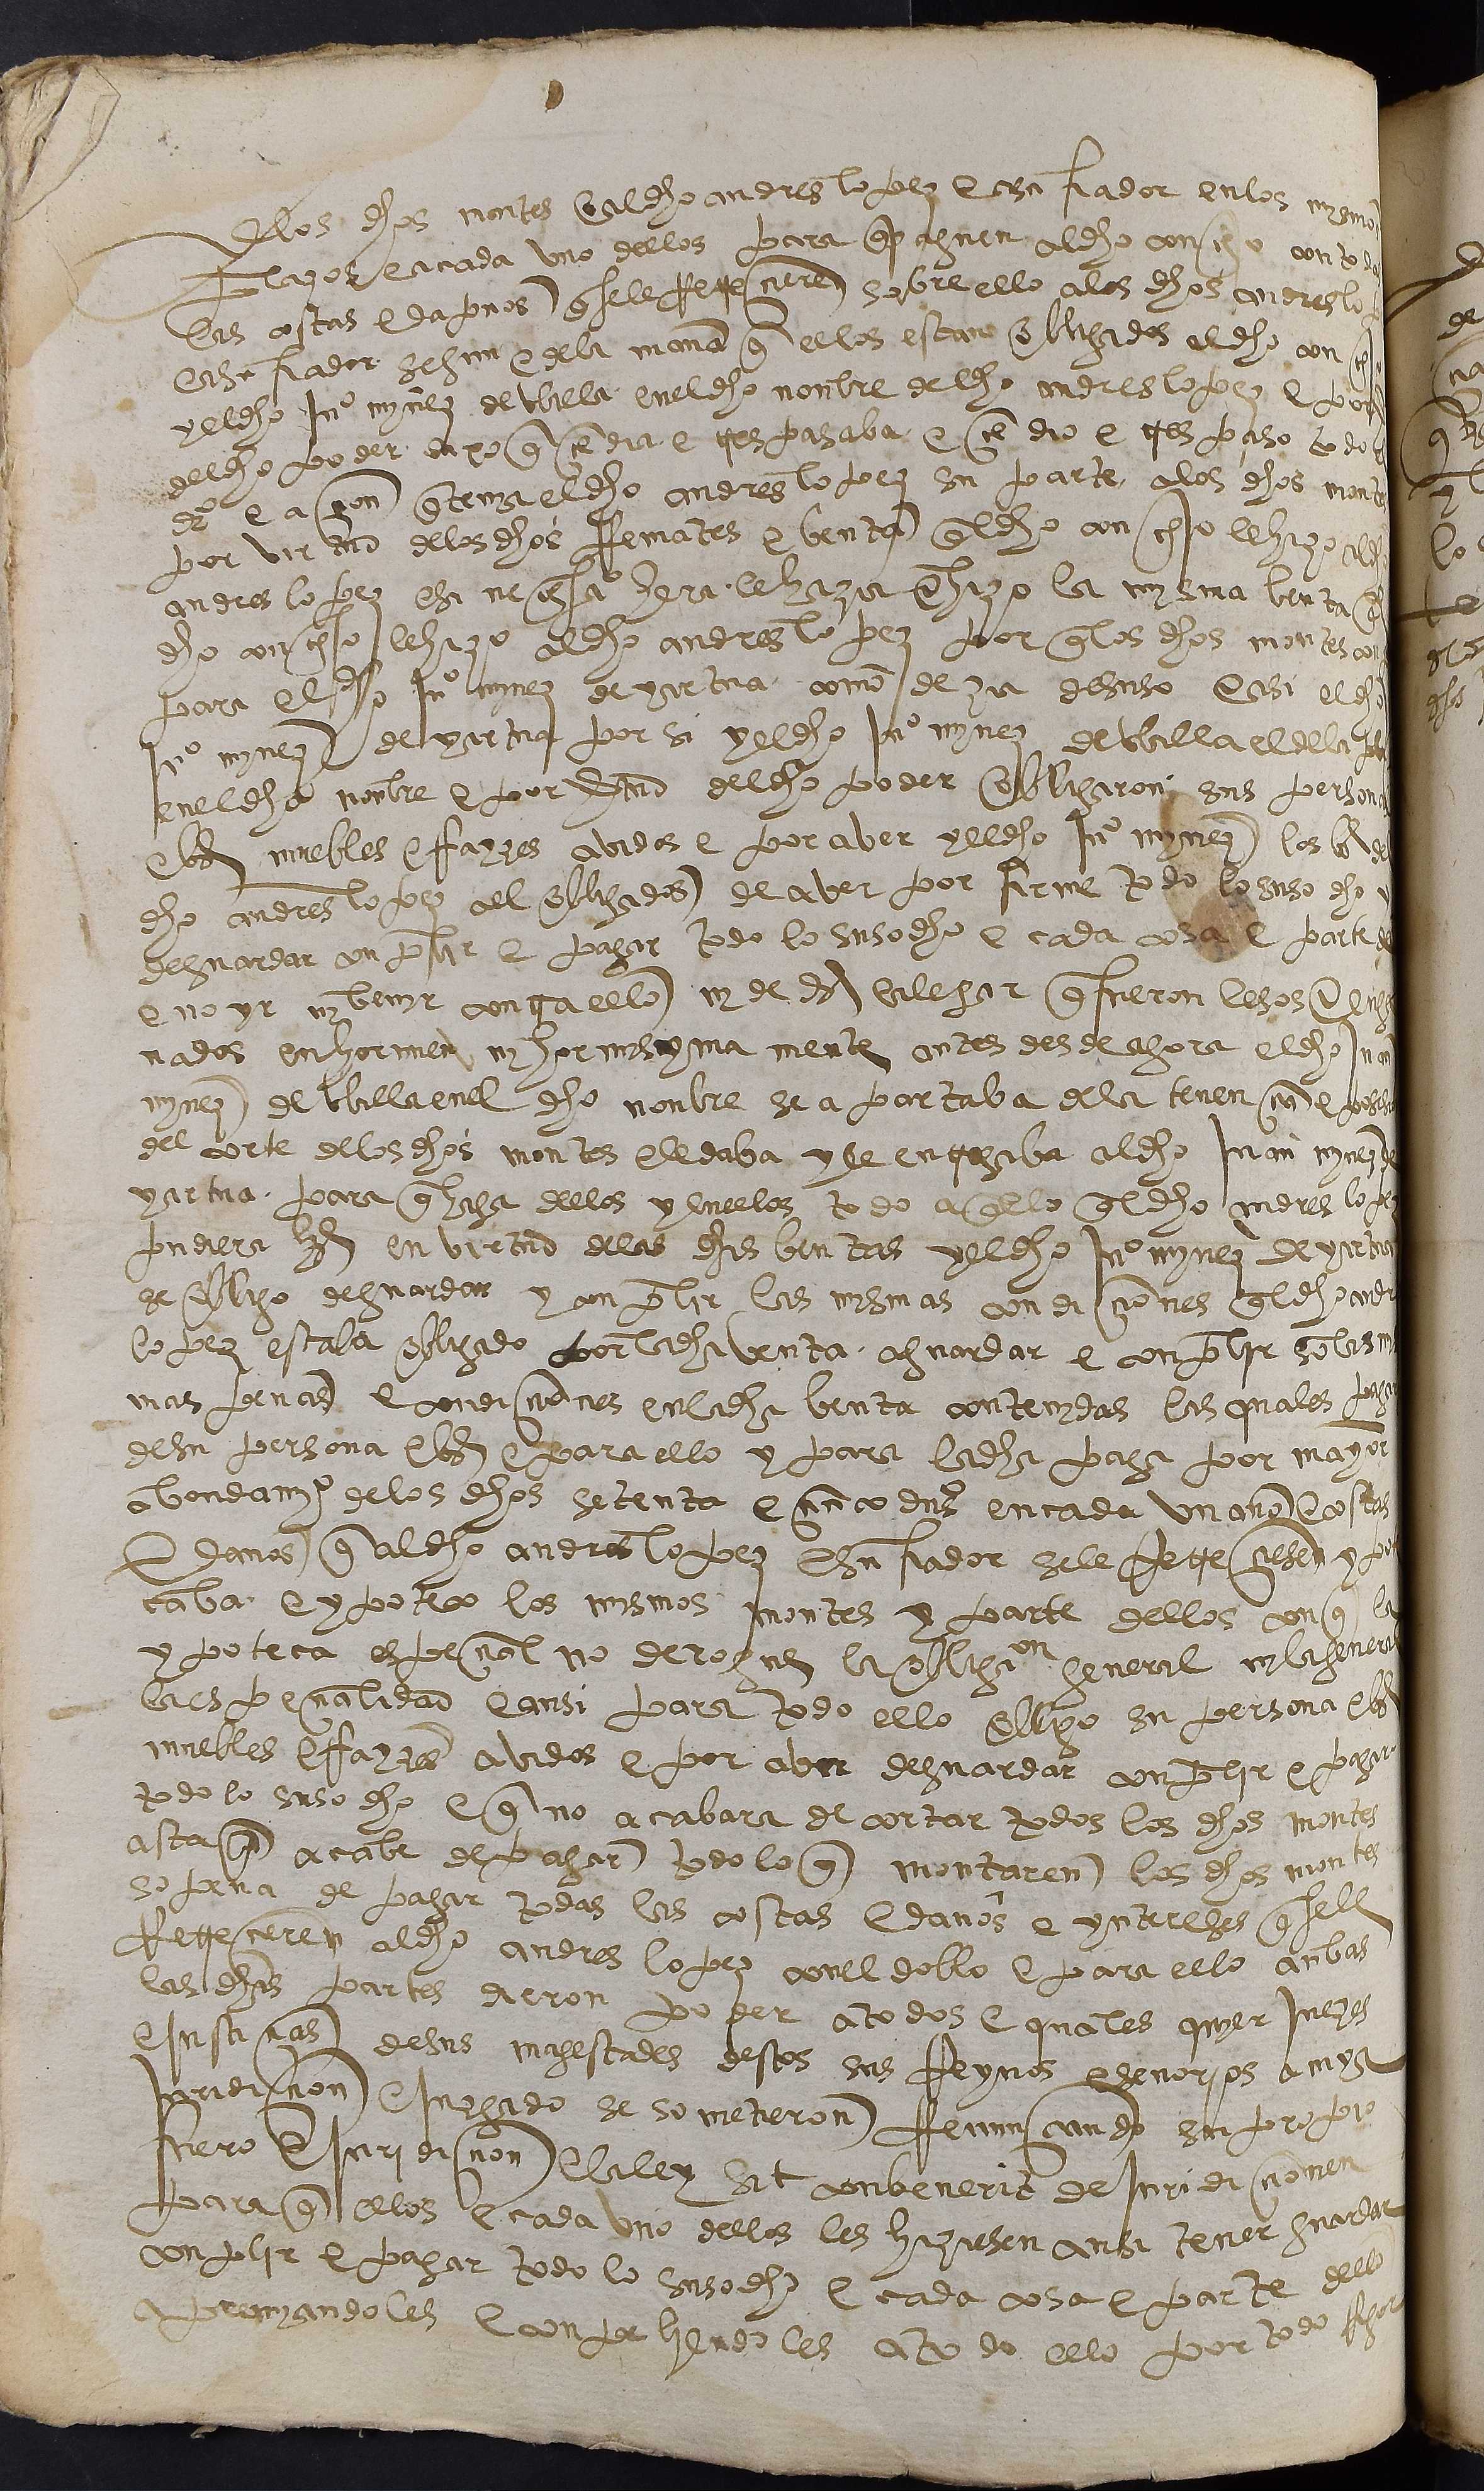 de los dhos montes e al dho andres lopez e a su fiador en los mysmos
plazos e a cada uno dellos para que paguen al dho concejo con todas
las costas e dapnos que se le rrecrecieren sobre ello a los dhos andres lopez
e a su fiador segun e de la manera que ellos estan obligados al dho concejo
y el dho juº mynez de ubilla en el dho nonbre del dho andres lopez e por
del dho poder dixo que cedia e traspasaba e cedio e traspaso todo el
drº e açion que tenya el dho andres lopez su parte a los dhos montes
por virtud de los dhos rremates e benta que el dho concejo le hizo al dho
andres lopez e si neçesario hera le hazia e hizo la mysma benta que el
dho concejo le hizo al dho andres lopez por que los dhos montes
para el dho juº mynez de yartua como dezia desuso e asi el dho
juº mynez de yartua por si y el dho juº mynez de ubilla el de la
en el dho nonbre e por virtud del dho poder obligaron sus personas
e bs muebles e rrayzes avidos e por aver y el dho juº mynez los bs del
dho andres lopez a el obligados de aver por firme todo lo suso dho y
de guardar conplir e pagar todo lo susodho e cada cosa e parte dello
e no yr ny benyr contra ello ny dezir e alegar que fueron lesos e enga
nados enhorme ny hormysyma mente antes desde agora el dho juan
mynez de ubilla en el dho nonbre se apartaba de la tenençia e posesion
del corte de los dhos montes e le daba y le entregaba al dho juan mynez de
yartua para que haga dellos y en ellos todo aquello que el dho andres lopez
pudiera hazer en virtud de las dhas bentas y el dho juº mynez de yartua
se obligo de guardar y conplir las mismas condiçiones que el dho andres
lopez estaba obligado por la dha venta a guardar e conplir so las mis
mas penas e condiçiones en la dha benta contenydas las quales pagar
de su persona e bs e para ello y para la dha paga por mayor
abondamyº de los dhos setenta e çinco dus en cada un año e costas
e danos que al dho andres lopez e su fiador se le rrecreciesen ypo
tecaba e ypoteco los mismos montes y parte dellos con que la
ypoteca espeçial no derogue la obligaon general ny la general
la espeçialidad e ansi para todo ello obligo su persona e bs
muebles e rrayzes avidos e por aver de guardar conplir e pagar
todo lo suso dho e que no acabara de cortar todos los dhos montes
asta que acabe de pagar todo lo que montaren los dhos montes
so pena de pagar todas las costas e danos e yntereses que se le
rrecrecieren al dho andres lopez con el doblo e para ello anbas
las dhas partes dieron poder a todos e quales quyer juezes
e justiçias de sus magestades destos sus rreynos e señorios a cuya
juridiçion e juzgado se sometieron rrenunçiando su propio
fuero e juridiçion e la ley sit convenerit de juridiçionen
para que ellos e cada uno dellos les hiziesen ansi tener guardar
conplir e pagar todo lo suso dho e cada cosa e parte dello
apremyandoles e conpeliendoles a todo ello por todo rrigor